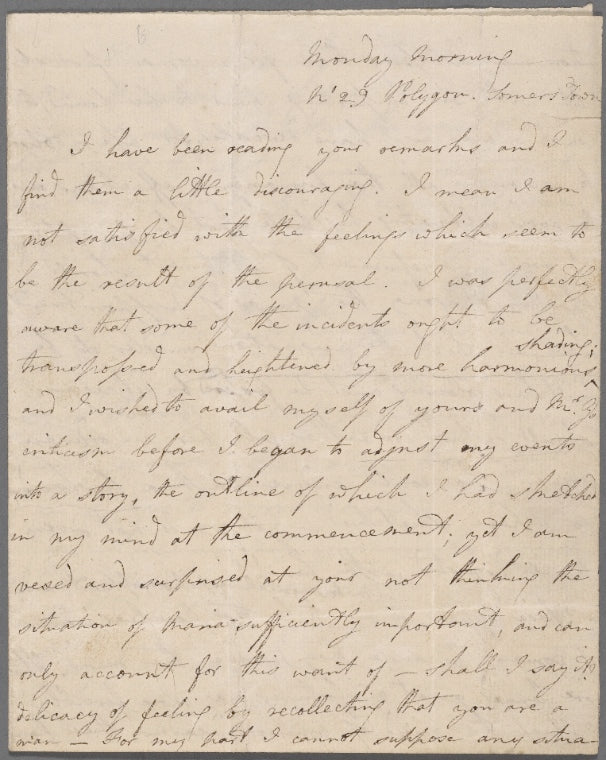 Monday Morning
No 29 Polygon. Somers Town
I have been reading your remarks and I
find them a little discouraging. I mean I am
not satisfied with the feelings which seem to
be the result of the perusal. I was perfectly
aware that some of the incidents ought to be
shading;
transpossed and heightened by more harmonious ^
and I wished to avail myself of yours and Mr. G's
criticism before I began to adjust my events
into a story, the outline of which I had sketched
in my mind at the commencement; yet I am
vexed and surprised at your not thinking the
situation of Maria sufficiently important, and can
only account for this want of — shall I say it?
delicacy of feeling by recollecting that you are a
man — For my part I cannot suppose any situa-